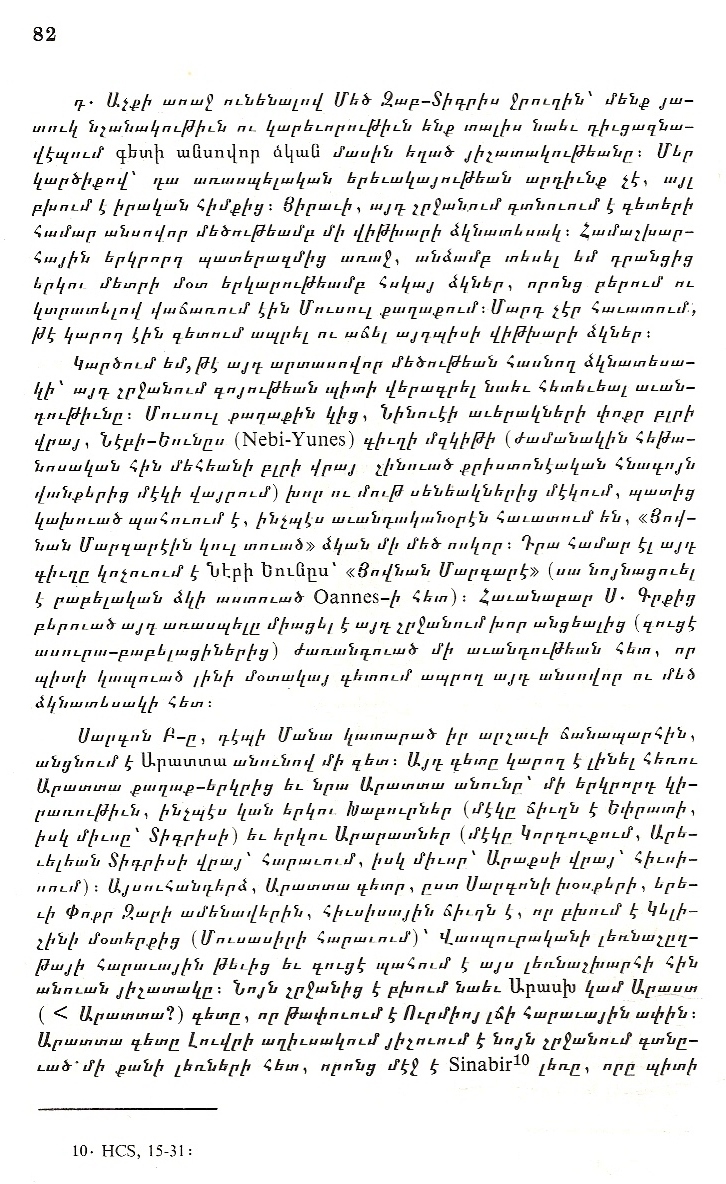 82
դ. Աչքի առաջ ունենալով Մեծ Զաբ–Տիգրիս ջրուղին՝ մենք յա-
տուկ նշանակութիւն ու կարեւորութիւն ենք տալիս նաեւ դիւցազնա-
վէպում գետի անսովոր ձկան մասին եղած յիշատակութեանը։ Մեր
կարծիքով՝ դա առասպելական երեւակայութեան արդիւնք չէ, այլ
բխում է իրական հիմքից։ Յիրաւի, այդ շրջանում գտնուում է գետերի
համար անսովոր մեծութեամբ մի վիթխարի ձկնատեսակ։ Համաշխար-
հային երկրորդ պատերազմից առաջ, անձամբ տեսել եմ դրանցից
երկու մետրի մօտ երկարութեամբ հսկայ ձկներ, որոնց բերում ու
կտրատելով վաճառում էին Մուսուլ քաղաքում։ Մարդ չէր հաւատում,
թէ կարող էին գետում ապրել ու աճել այդպիսի վիթխարի ձկներ։
Կարծում եմ, թէ այդ արտասովոր մեծութեան հասնող ձկնատեսա-
կի՝ այդ շրջանում գոյութեան պիտի վերագրել նաեւ հետեւեալ աւան-
դութիւնը։ Մուսուլ քաղաքին կից, Նինուէի աւերակների փոքր բլրի
վրայ, Նէբի–Եունըս (Nebi-Yunes) գիւղի մզկիթի (ժամանակին հեթա-
նոսական հին մեհեանի բլրի վրայ շինուած քրիստոնէական հնագոյն
վանքերից մէկի վայրում) խոր ու մութ սենեակներից մէկում, պատից
կախուած պահուում է, ինչպէս աւանդականօրէն հաւատում են, «Յով-
նան Մարգարէին կուլ տուած» ձկան մի մեծ ոսկոր։ Դրա համար էլ այդ
գիւղը կոչուում է Նէբի Եունըս՝ «Յովնան Մարգարէ» (սա նոյնացուել
է բաբելական ձկի աստուած Oannes–ի հետ)։ Հաւանաբար Ս. Գրքից
բերուած այդ առասպելը միացել է այդ շրջանում խոր անցեալից (գուցէ
ասուրա–բաբելացիներից) ժառանգուած մի աւանդութեան հետ, որ
պիտի կապուած լինի մօտակայ գետում ապրող այդ անսովոր ու մեծ
ձկնատեսակի հետ։
Սարգոն Բ–ը, դէպի Մանա կատարած իր արշաւի ճանապարհին,
անցնում է Արատտա անունով մի գետ։ Այդ գետը կարող է լինել հեռու
Արատտա քաղաք–երկրից եւ նրա Արատտա անունը՝ մի երկրորդ կի-
րառութիւն, ինչպէս կան երկու Խաբուրներ (մէկը ճիւղն է Եփրատի,
իսկ միւսը՝ Տիգրիսի) եւ երկու Արարատներ (մէկը Կորդուքում, Արե-
ւելեան Տիգրիսի վրայ՝ հարաւում, իսկ միւսը՝ Արաքսի վրայ՝ հիւսի-
սում)։ Այսուհանդերձ, Արատտա գետը, ըստ Սարգոնի խօսքերի, երե-
ւի Փոքր Զաբի ամենավերին, հիւսիսային ճիւղն է, որ բխում է Կելի-
շինի մօտերքից (Մուսասիրի հարաւում)՝ Վասպուրականի լեռնաշըղ-
թայի հարաւային թեւից եւ գուցէ պահում է այս լեռնաշխարհի հին
անուան յիշատակը։ Նոյն շրջանից է բխում նաեւ Արասխ կամ Արաստ
( < Արատտա?) գետը, որ թափուում է Ուրմիոյ լճի հարաւային ափին։
Արատտա գետը Լուվրի աղիւսակում յիշուում է նոյն շրջանում գտնը-
ւած մի քանի լեռների հետ, որոնց մէջ է Sinabir10 լեռը, որը պիտի
10. HCS, 15-31։